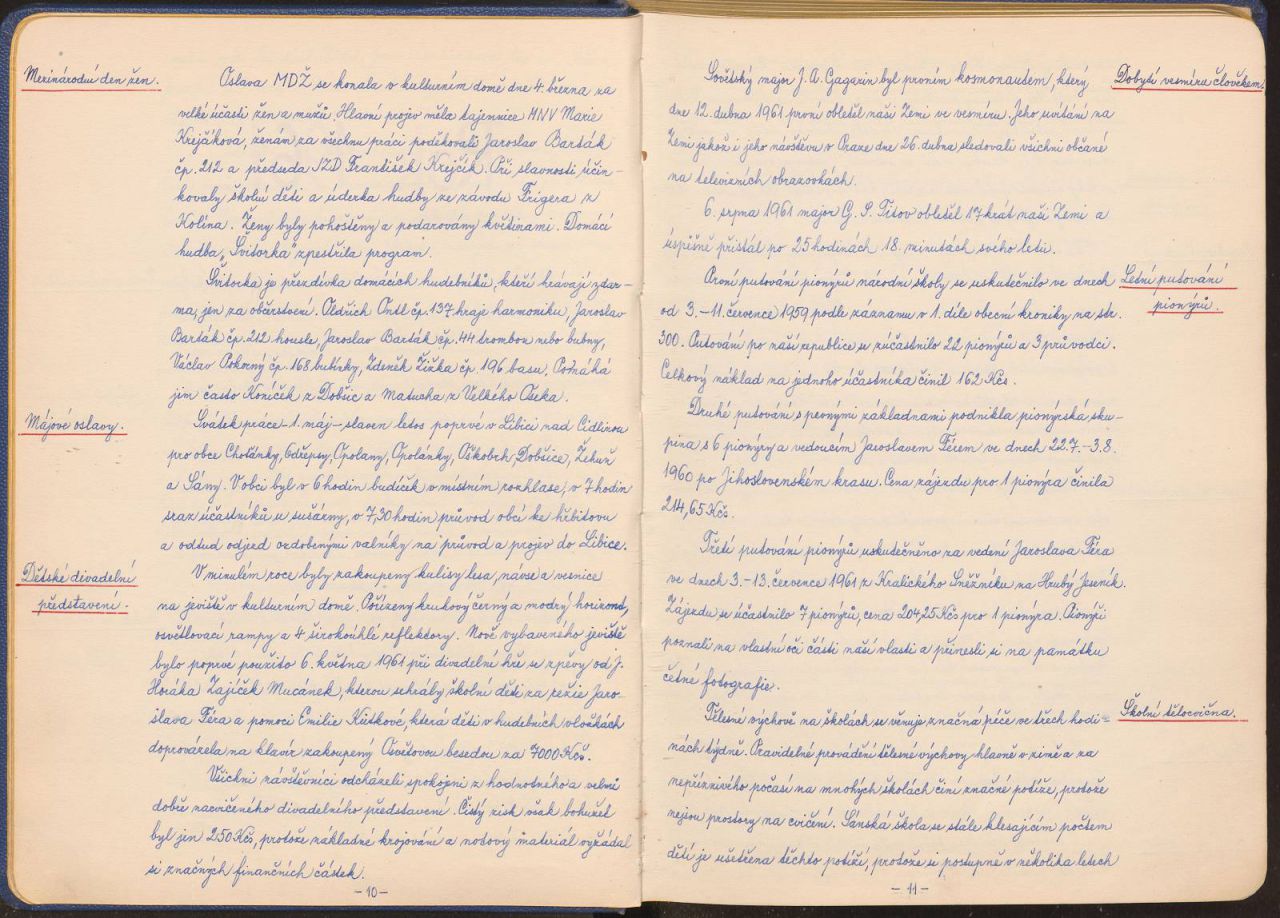 Mezinárodní den žen.
Oslava MDŽ se konala v kulturním domě dne 4. března za
velké účasti žen a mužů. Hlavní projev měla tajemnice MNV Marie
Krejčáková, ženám za všechnu práci poděkovali Jaroslav Barták
čp. 212 a předseda JZD František Krejčík. Při slavnosti účin-
kovaly školní děti a úderka hudby ze závodu Frigera z
Kolína. Ženy byly pohoštěny a podarovány květinami. Domácí
hudba „Svitorka" zpestřila program.
Svitorka je přezdívka domácích hudebníků, kteří hrávají zdar-
ma, jen za občerstvení. Oldřich Ontl čp. 137 hraje harmoniku, Jaroslav
Barták čp. 212 housle, Jaroslav Barták čp. 44 trombon nebo bubny,
Václav Pokorný čp. 168 bubínky, Zdeněk Žižka čp. 196 basu. Pomáhá
jim často Koníček z Dobšic a Matucha z Velkého Oseka.
Májové oslavy.
Svátek práce - 1. máj - slaven letos poprvé v Libici nad Cidlinou
pro obce Choťánky, Odřepsy, Opolany, Opolánky, Oškobrh, Dobšice, Žehuň
a Sány. V obci byl v 6 hodin budíček v místním rozhlase, v 7 hodin
sraz účastníků u sušárny, v 7,30 hodin průvod obcí ke hřbitovu
a odtud odjezd ozdobenými valníky na průvod a projev do Libice.
Dětské divadelní
představení.
V minulém roce byly zakoupeny kulisy lesa, návse a vesnice
na jeviště v kulturním domě. Pořízeny kruhový černý a modrý horizont,
osvětlovací rampy a 4 širokoúhlé reflektory. Nově vybaveného jeviště
bylo poprvé použito 6. května 1961 při divadelní hře se zpěvy od J.
Horáka Zajíček Mucánek, kterou sehrály školní děti za režie Jaro-
slava Féra a pomoci Emilie Kůtkové, která děti v hudebních vložkách
doprovázela na klavír zakoupený Osvětovou besedou za 7000 Kčs.
Všichni návštěvníci odcházeli spokojni z hodnotného a velmi
dobře nacvičeného divadelního představení. Čistý zisk však bohužel
byl jen 250 Kčs, protože nákladné krojování a notový materiál vyžádal
si značných finančních částek.
- 10 -
Dobytí vesmíru člověkem.
Sovětský major J. A. Gagarin byl prvním kosmonautem, který
dne 12. dubna 1961 první obletěl naši Zemi ve vesmíru. Jeho uvítání na
Zemi jakož i jeho návštěvu v Praze dne 26. dubna sledovali všichni občané
na televizních obrazovkách.
6. srpna 1961 major G. S. Titov obletěl 17 krát naši Zemi a
úspěšně přistál po 25 hodinách 18. minutách svého letu.
Letní putování
pionýrů.
První putování pionýrů národní školy se uskutečnilo ve dnech
od 3. - 11. července 1959 podle záznamu v 1. díle obecní kroniky na str.
300. Putování po naší republice se zúčastnilo 22 pionýrů a 3 průvodci.
Celkový náklad na jednoho účastníka činil 162 Kčs.
Druhé putování s pevnými základnami podnikla pionýrská sku-
pina s 6 pionýry a vedoucím Jaroslavem Férem ve dnech 22.7. - 3.8.
1960 po Jihoslovenském krasu. Cena zájezdu pro 1 pionýra činila
214,65 Kčs.
Třetí putování pionýrů uskutečněno za vedení Jaroslava Féra
ve dnech 3. - 13. července 1961 z Kralického Sněžníku na Hrubý Jeseník.
Zájezdu se účastnilo 7 pionýrů, cena 204,25 Kčs pro 1 pionýra. Pionýři
poznali na vlastní oči části naší vlasti a přinesli si na památku
četné fotografie.
Školní tělocvična.
Tělesné výchově na školách se věnuje značná péče ve třech hodi-
nách týdně. Pravidelné provádění tělesné výchovy hlavně v zimě a za
nepříznivého počasí na mnohých školách činí značné potíže, protože
nejsou prostory na cvičení. Sánská škola se stále klesajícím počtem
dětí je ušetřena těchto potíží, protože si postupně v několika letech
- 11 -